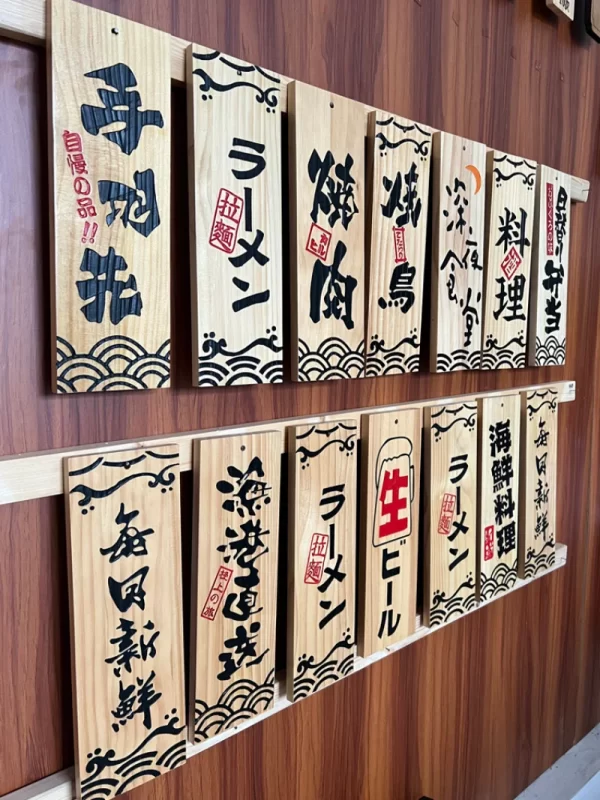 手羽先
自慢の品!!
ラーメン
拉麺
焼肉
焼鳥
深夜食堂
料理
弁当
毎日新鮮
漁港直送
極上の旅
ラーメン
拉麺
生ビール
ラーメン
拉麺
海鮮料理
毎日新鮮